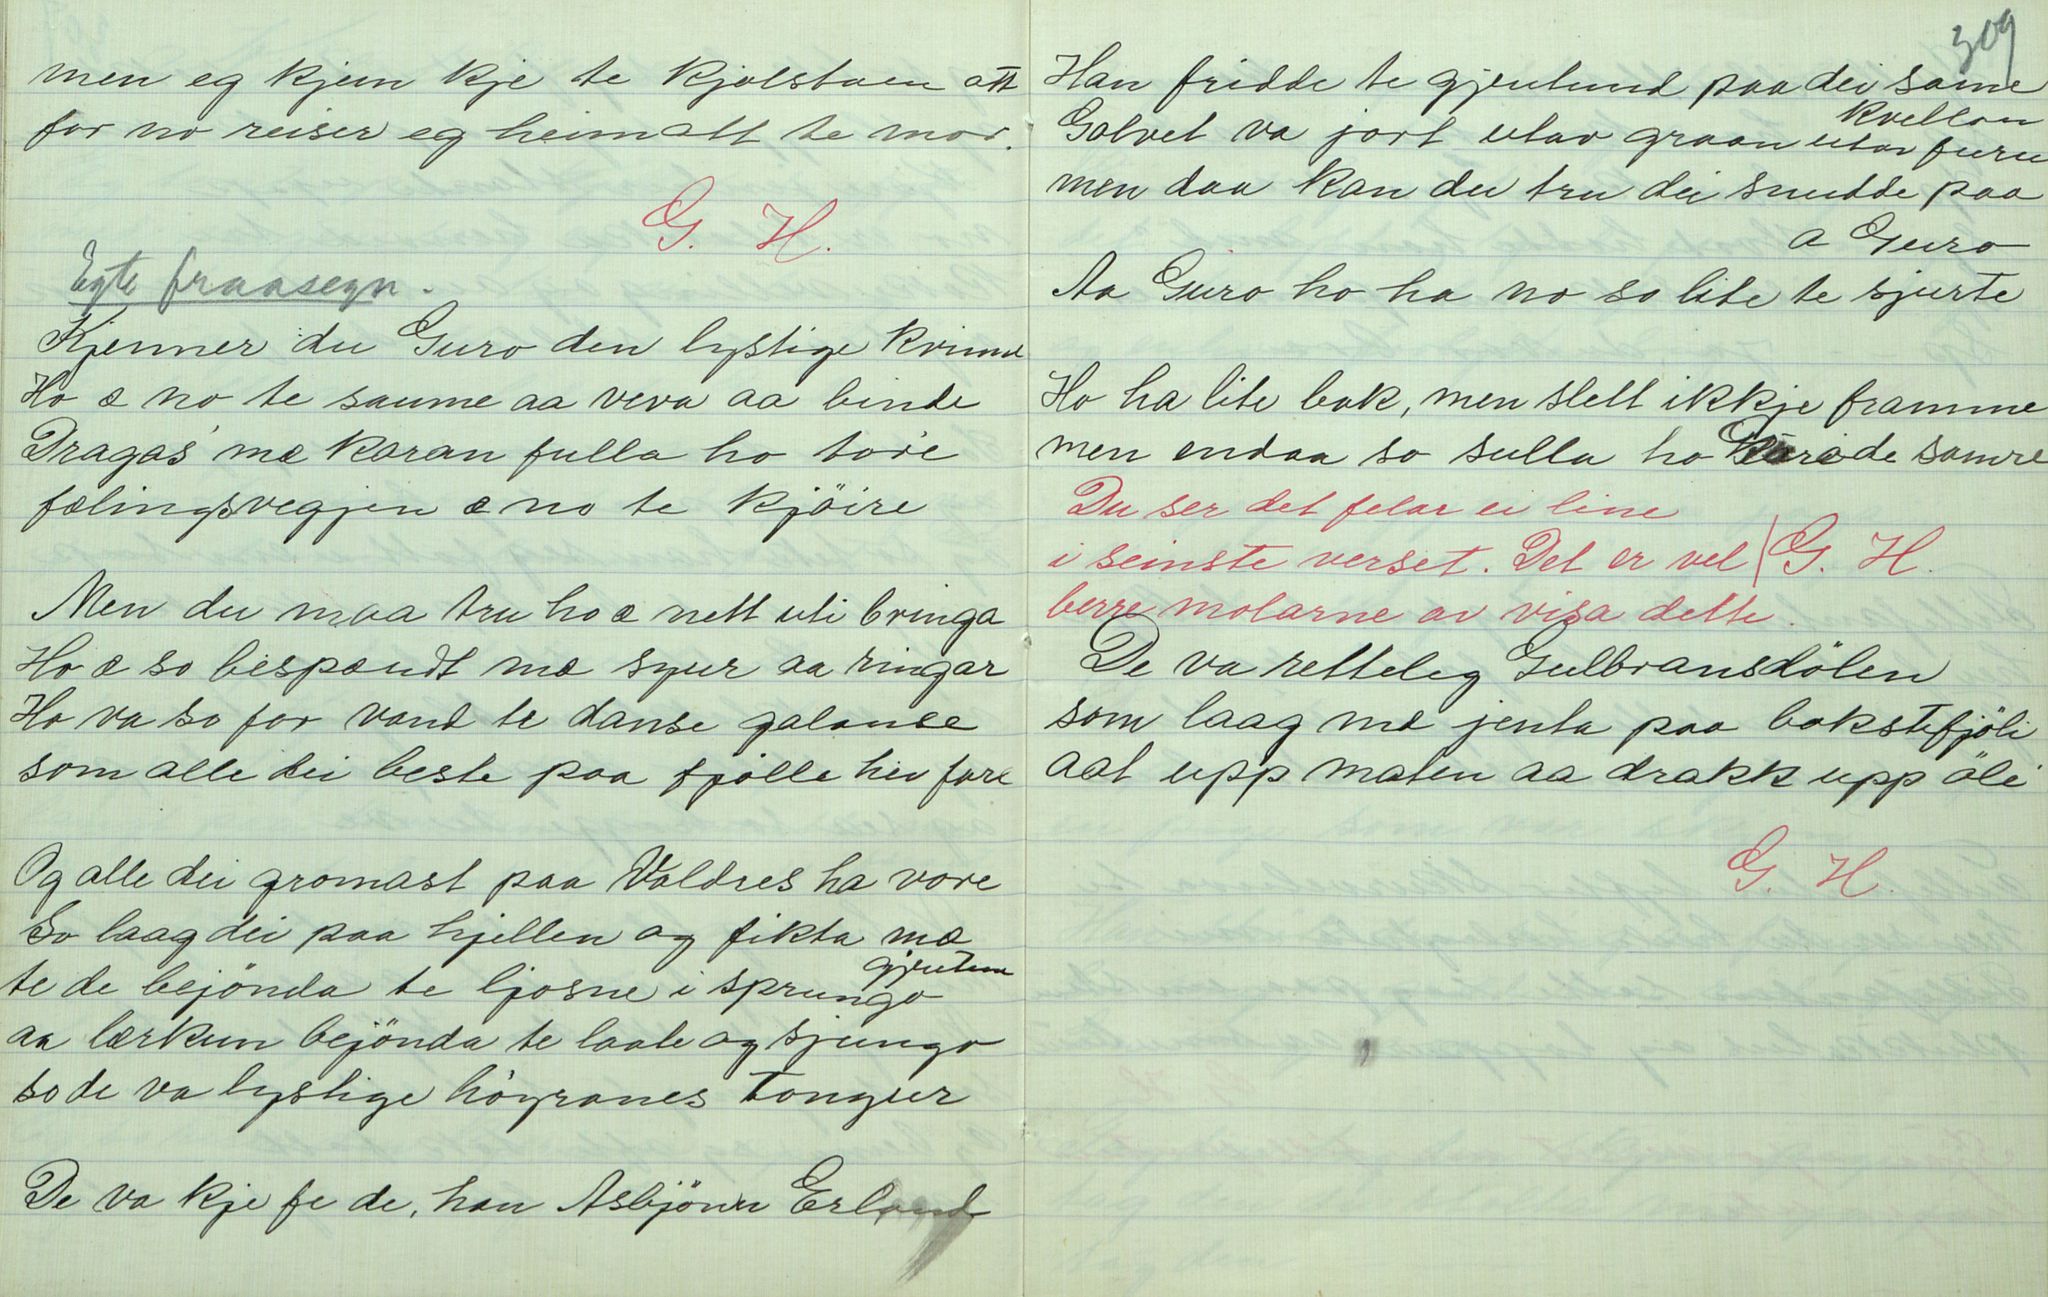 men eg kjem kje te Kjølstaen att
for no reiser eg heimatt te mor.
G. H.
Egte fraasegn.
Kjenner du Guro den lystige kvinne
Ho æ no te saume aa veva aa binde
Dragas mæ karan fulla ho tore
fælingsvegjen æ no te kjöire
Men du maa tru ho æ nett uti bringa
Ho æ so bespændt mæ syur aa ringar
Ho va so for vand te danse galance
som alle dei beste paa fjölle hev fare
Og alle dei gromast paa Valdres ha vore
So laag dei paa hjellen og fikta mæ
gjentem
te de bejönda te ljosne i sprungo
aa lærkun bejönda te laate og sjungo
so de va lystige högranes tongur
De va kje fe de, han Asbjönn Erland
309
Han fridde te gjentund paa dei same
kvellen
Golvet va jort utav graan utav furu
men daa kan du tru dei snudde paa
a Guro
Aa Guro ho ha no so lite te sjurte
Ho ha lite bak, men slett ikkje framme
men endaa so sulla ho de samre
Du ser det felar ei line
i seinste verset. Det er vel
berre molarne av visa dette.
G. H.
De va retteleg Gulbransdölen
som laag mæ jenta paa bakstefjöli
aat upp maten aa drakk upp öli
G. H.